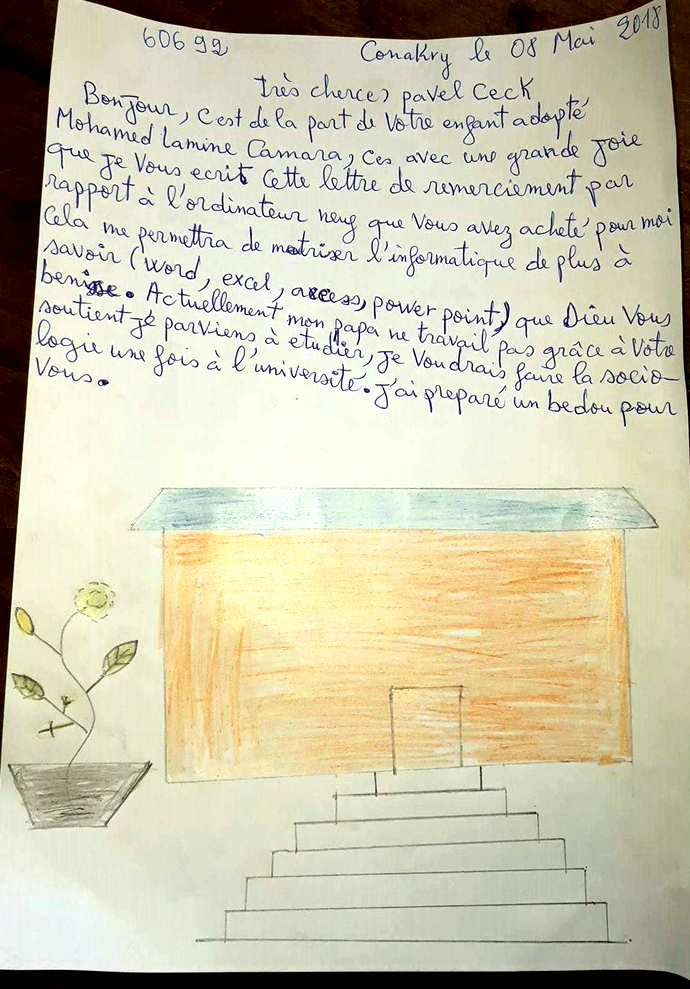 60692
Conakry le 08 Mai 2018
très cherces pavel Ceck
Bonjour, C'est de la part de Votre enfant adopté
Mohamed Lamine Camara, Ces avec une grande joie
que je Vous ecrit Cette lettre de remerciement par
rapport à l'ordinateur neuf que Vous avez acheté pour moi
Cela me permettra de matriser l'informatique de plus à
savoir (Word, excel, access, power point) que Dieu Vous
benisse. Actuellement mon papa ne travail pas grâce à Votre
soutient je parviens à etudier, je Voudrais faire la socio-
logie une fois à l'université. J'ai preparé un bedou pour
Vous.